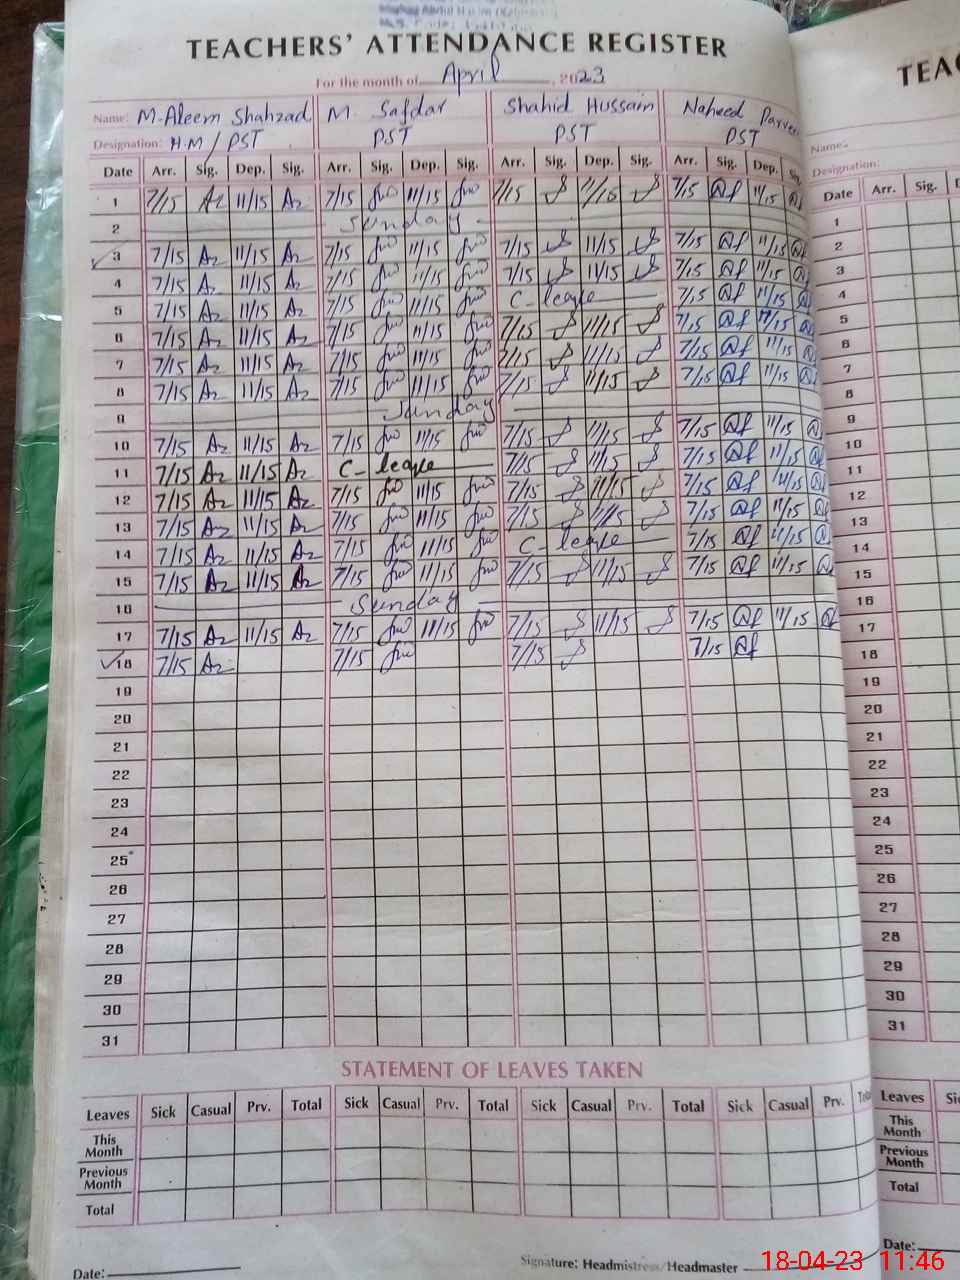 TEACHERS' ATTENDANCE REGISTER
For the month of April, 2023
Name: M. Aleem Shahzad M. Safdar Shahid Hussain Naheed Parveen
Designation: H.M / PST PST PST PST
Date Arr. Sig. Dep. Sig. Arr. Sig. Dep. Sig. Arr. Sig. Dep. Sig. Arr. Sig. Dep.
1 7/15 11/15 7/15 11/15 7/15 11/15 7/15 11/15
2 Sunday
3 7/15 11/15 7/15 11/15 7/15 11/15 7/15 11/15
4 7/15 11/15 7/15 11/15 7/15 11/15 7/15 11/15
5 7/15 11/15 7/15 11/15 C-leave 7/15 11/15
6 7/15 11/15 7/15 11/15 7/15 11/15 7/15 11/15
7 7/15 11/15 7/15 11/15 7/15 11/15 7/15 11/15
8 7/15 11/15 7/15 11/15 7/15 11/15 7/15 11/15
9 Sunday
10 7/15 11/15 7/15 11/15 7/15 11/15 7/15 11/15
11 7/15 11/15 C-leave 7/15 11/15 7/15 11/15
12 7/15 11/15 7/15 11/15 7/15 11/15 7/15 11/15
13 7/15 11/15 7/15 11/15 7/15 11/15 7/15 11/15
14 7/15 11/15 7/15 11/15 C-leave 7/15 11/15
15 7/15 11/15 7/15 11/15 7/15 11/15 7/15 11/15
16 Sunday
17 7/15 11/15 7/15 11/15 7/15 11/15 7/15 11/15
18 7/15 7/15 7/15 7/15
19
20
21
22
23
24
25
26
27
28
29
30
31
STATEMENT OF LEAVES TAKEN
Leaves Sick Casual Prv. Total Sick Casual Prv. Total Sick Casual Prv. Total Sick Casual Prv.
This Month
Previous Month
Total
Date: Signature: Headmistress/Headmaster
Name:
Designation:
Date Arr. Sig.
1
2
3
4
5
6
7
8
9
10
11
12
13
14
15
16
17
18
19
20
21
22
23
24
25
26
27
28
29
30
31
Leaves
This Month
Previous Month
Total
Date:
18-04-23 11:46